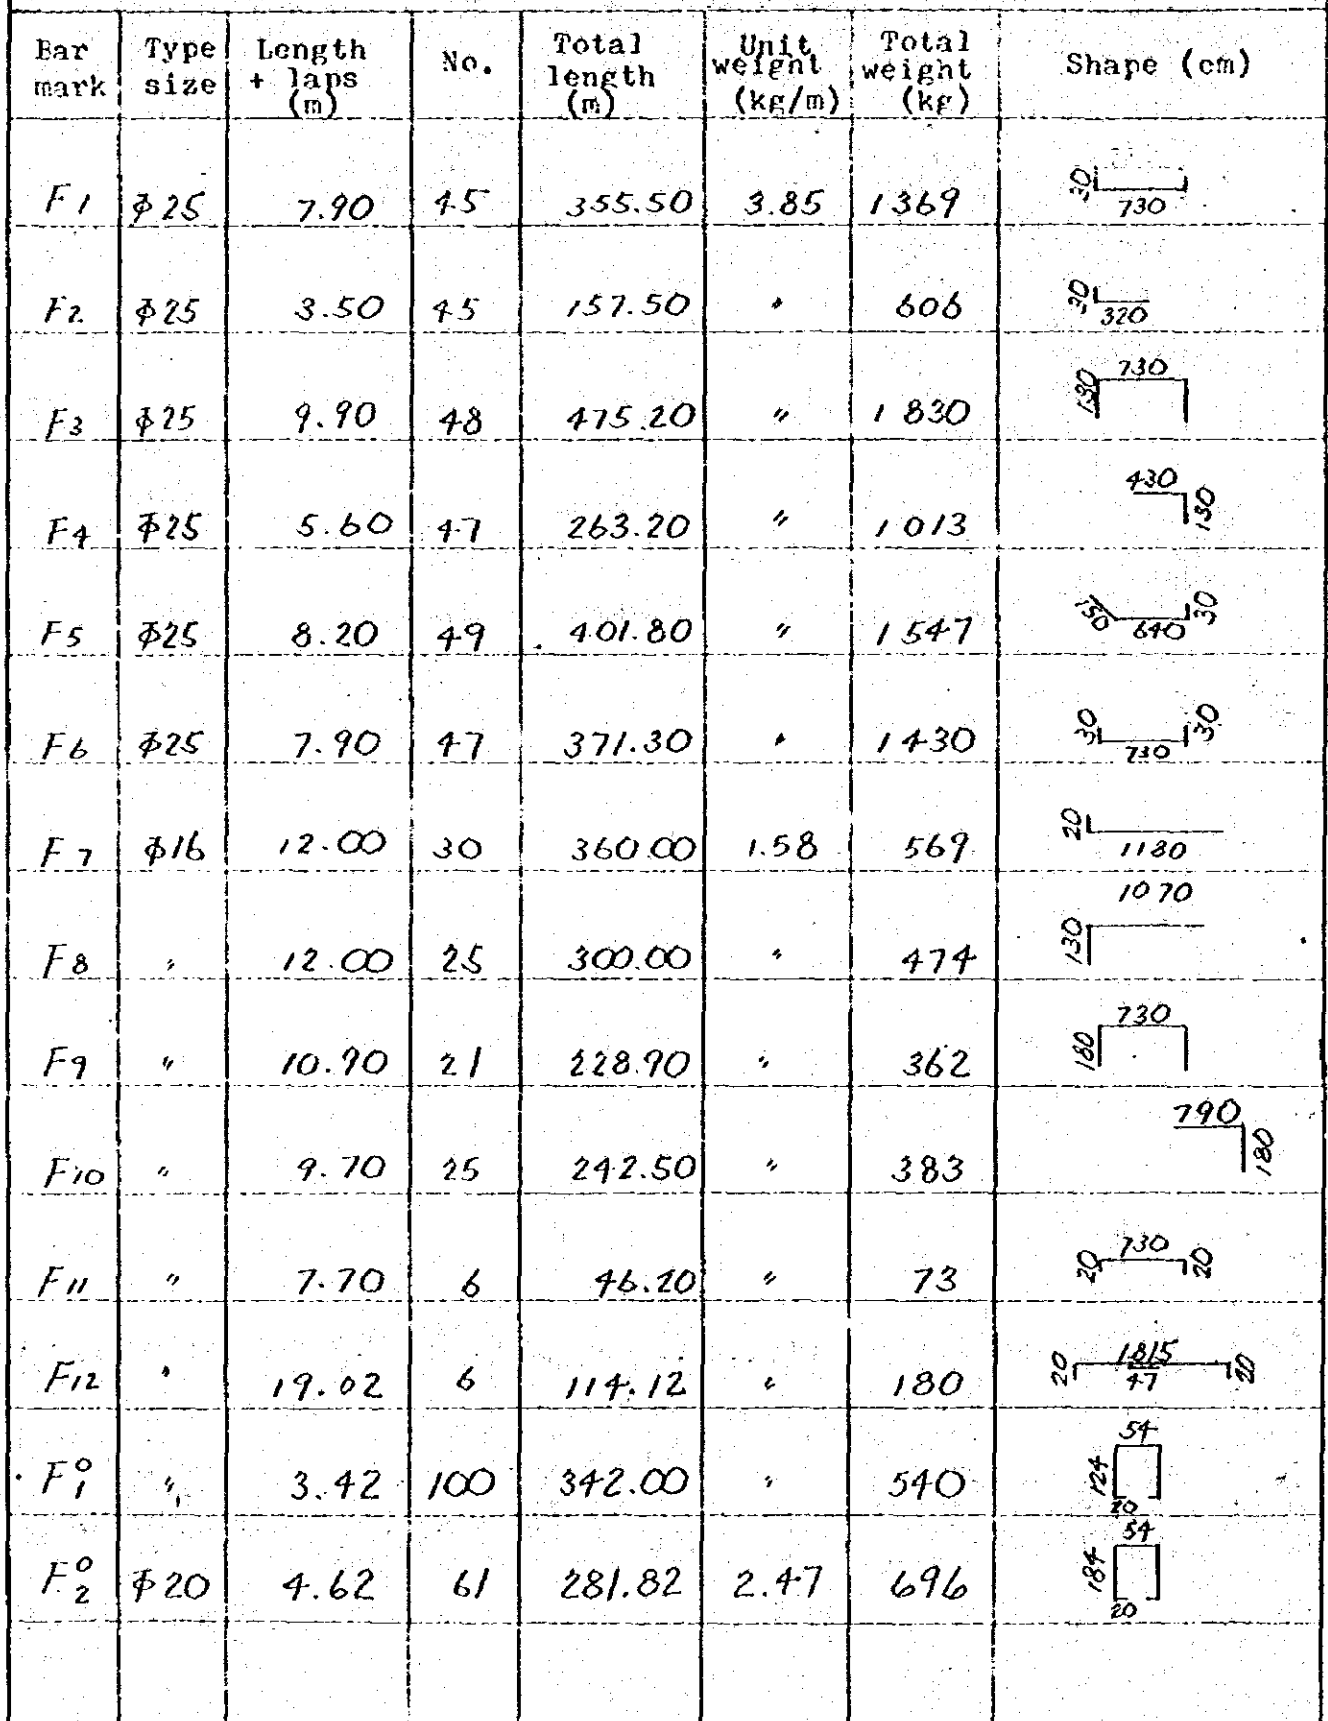 Bar mark Type size Length + laps (m) No. Total length (m) Unit weight (kg/m) Total weight (kg) Shape (cm)
F1 ϕ25 7.90 45 355.50 3.85 1369 30 730
F2 ϕ25 3.50 45 157.50 〃 606 30 320
F3 ϕ25 9.90 48 475.20 〃 1830 130 730
F4 ϕ25 5.60 47 263.20 〃 1013 430 130
F5 ϕ25 8.20 49 401.80 〃 1547 150 640 30
F6 ϕ25 7.90 47 371.30 〃 1430 30 730 30
F7 ϕ16 12.00 30 360.00 1.58 569 20 1180
F8 〃 12.00 25 300.00 〃 474 130 1070
F9 〃 10.90 21 228.90 〃 362 180 730
F10 〃 9.70 25 242.50 〃 383 790 180
F11 〃 7.70 6 46.20 〃 73 20 730 20
F12 〃 19.02 6 114.12 〃 180 20 1815 47 20
F⁰₁ 〃 3.42 100 342.00 〃 540 54 124 20
F⁰₂ ϕ20 4.62 61 281.82 2.47 696 54 184 20